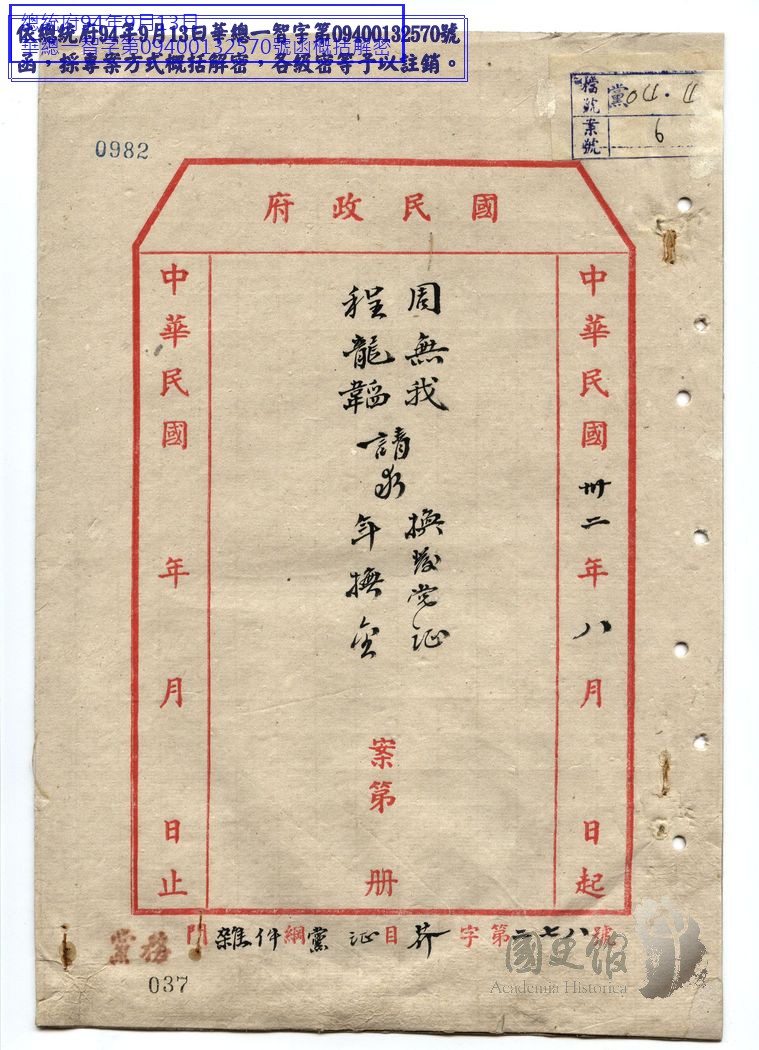 總統府94年9月13日
華總一智字第09400132570號函概括解密
依總統府94年9月13日華總一智字第09400132570號
函，採專案方式概括解密，各級密等予以註銷。
檔號 黨011.11
案號 6
0982
國民政府
中華民國卅二年八月 日起
周無我 換發党证
請求
程龍韜 年撫金
案第 册
中華民國 年 月 日止
黨務門雜件綱黨证目芥字第二七八號
037
國史館
Academia Historica